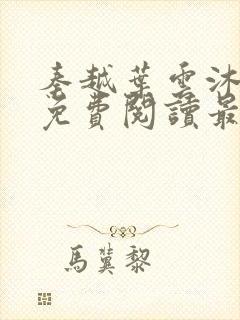 秦越葉雲沐
免費閱讀最
馬冀黎